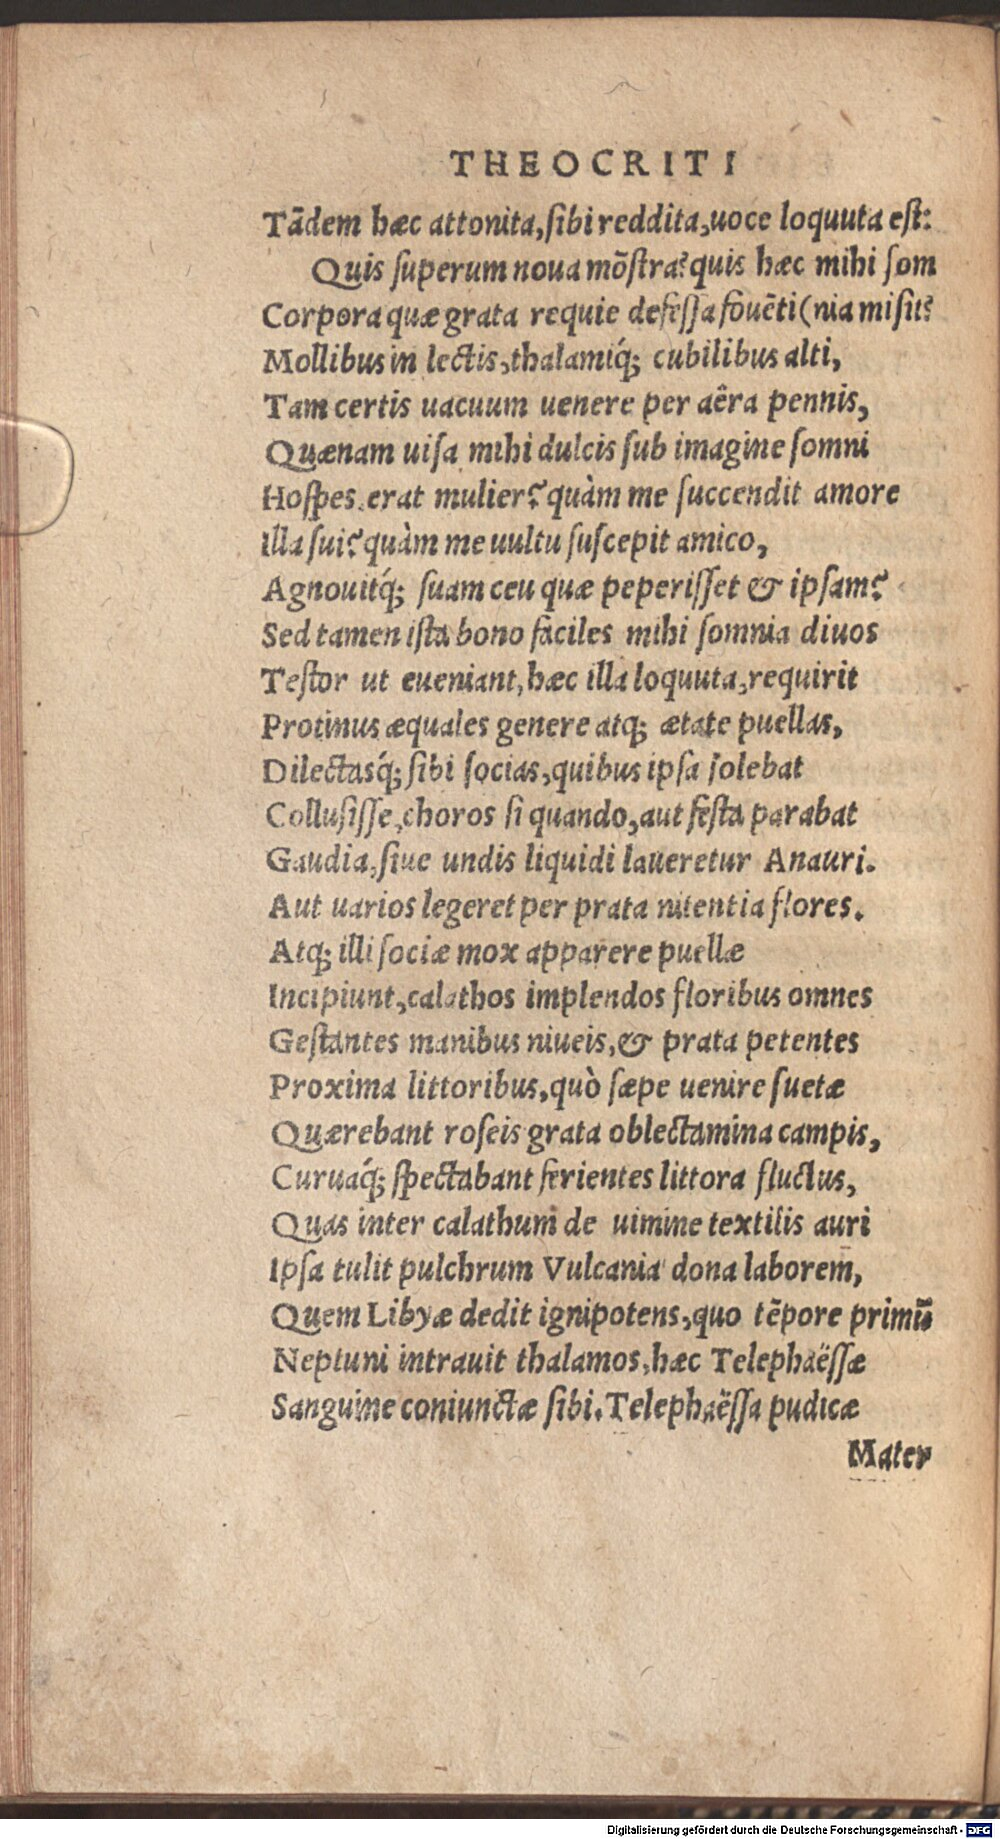 THEOCRITI
Tādem hæc attonita, sibi reddita, uoce loquuta est:
Quis superum noua mōstra? quis hæc mihi som
Corpora quæ grata requie defessa fouēti (nia misit?
Mollibus in lectis, thalamiq́; cubilibus alti,
Tam certis uacuum uenere per aêra pennis,
Quænam uisa mihi dulcis sub imagine somni
Hospes erat mulier? quàm me succendit amore
Illa sui? quàm me uultu suscepit amico,
Agnouitq́; suam ceu quæ peperisset & ipsam?
Sed tamen ista bono faciles mihi somnia diuos
Testor ut eueniant, hæc illa loquuta, requirit
Protinus æquales genere atq; ætate puellas,
Dilectasq́; sibi socias, quibus ipsa solebat
Collusisse, choros si quando, aut festa parabat
Gaudia, siue undis liquidi laueretur Anauri.
Aut uarios legeret per prata nitentia flores.
Atq; illi sociæ mox apparere puellæ
Incipiunt, calathos implendos floribus omnes
Gestantes manibus niueis, & prata petentes
Proxima littoribus, quò sæpe uenire suetæ
Quærebant roseis grata oblectamina campis,
Curuaq́; spectabant ferientes littora fluctus,
Quas inter calathum de uimine textilis auri
Ipsa tulit pulchrum Vulcania dona laborem,
Quem Libyæ dedit ignipotens, quo tēpore primū
Neptuni intrauit thalamos, hæc Telephaëssæ
Sanguine coniunctæ sibi. Telephaëssa pudicæ
Mater
Digitalisierung gefördert durch die Deutsche Forschungsgemeinschaft - DFG